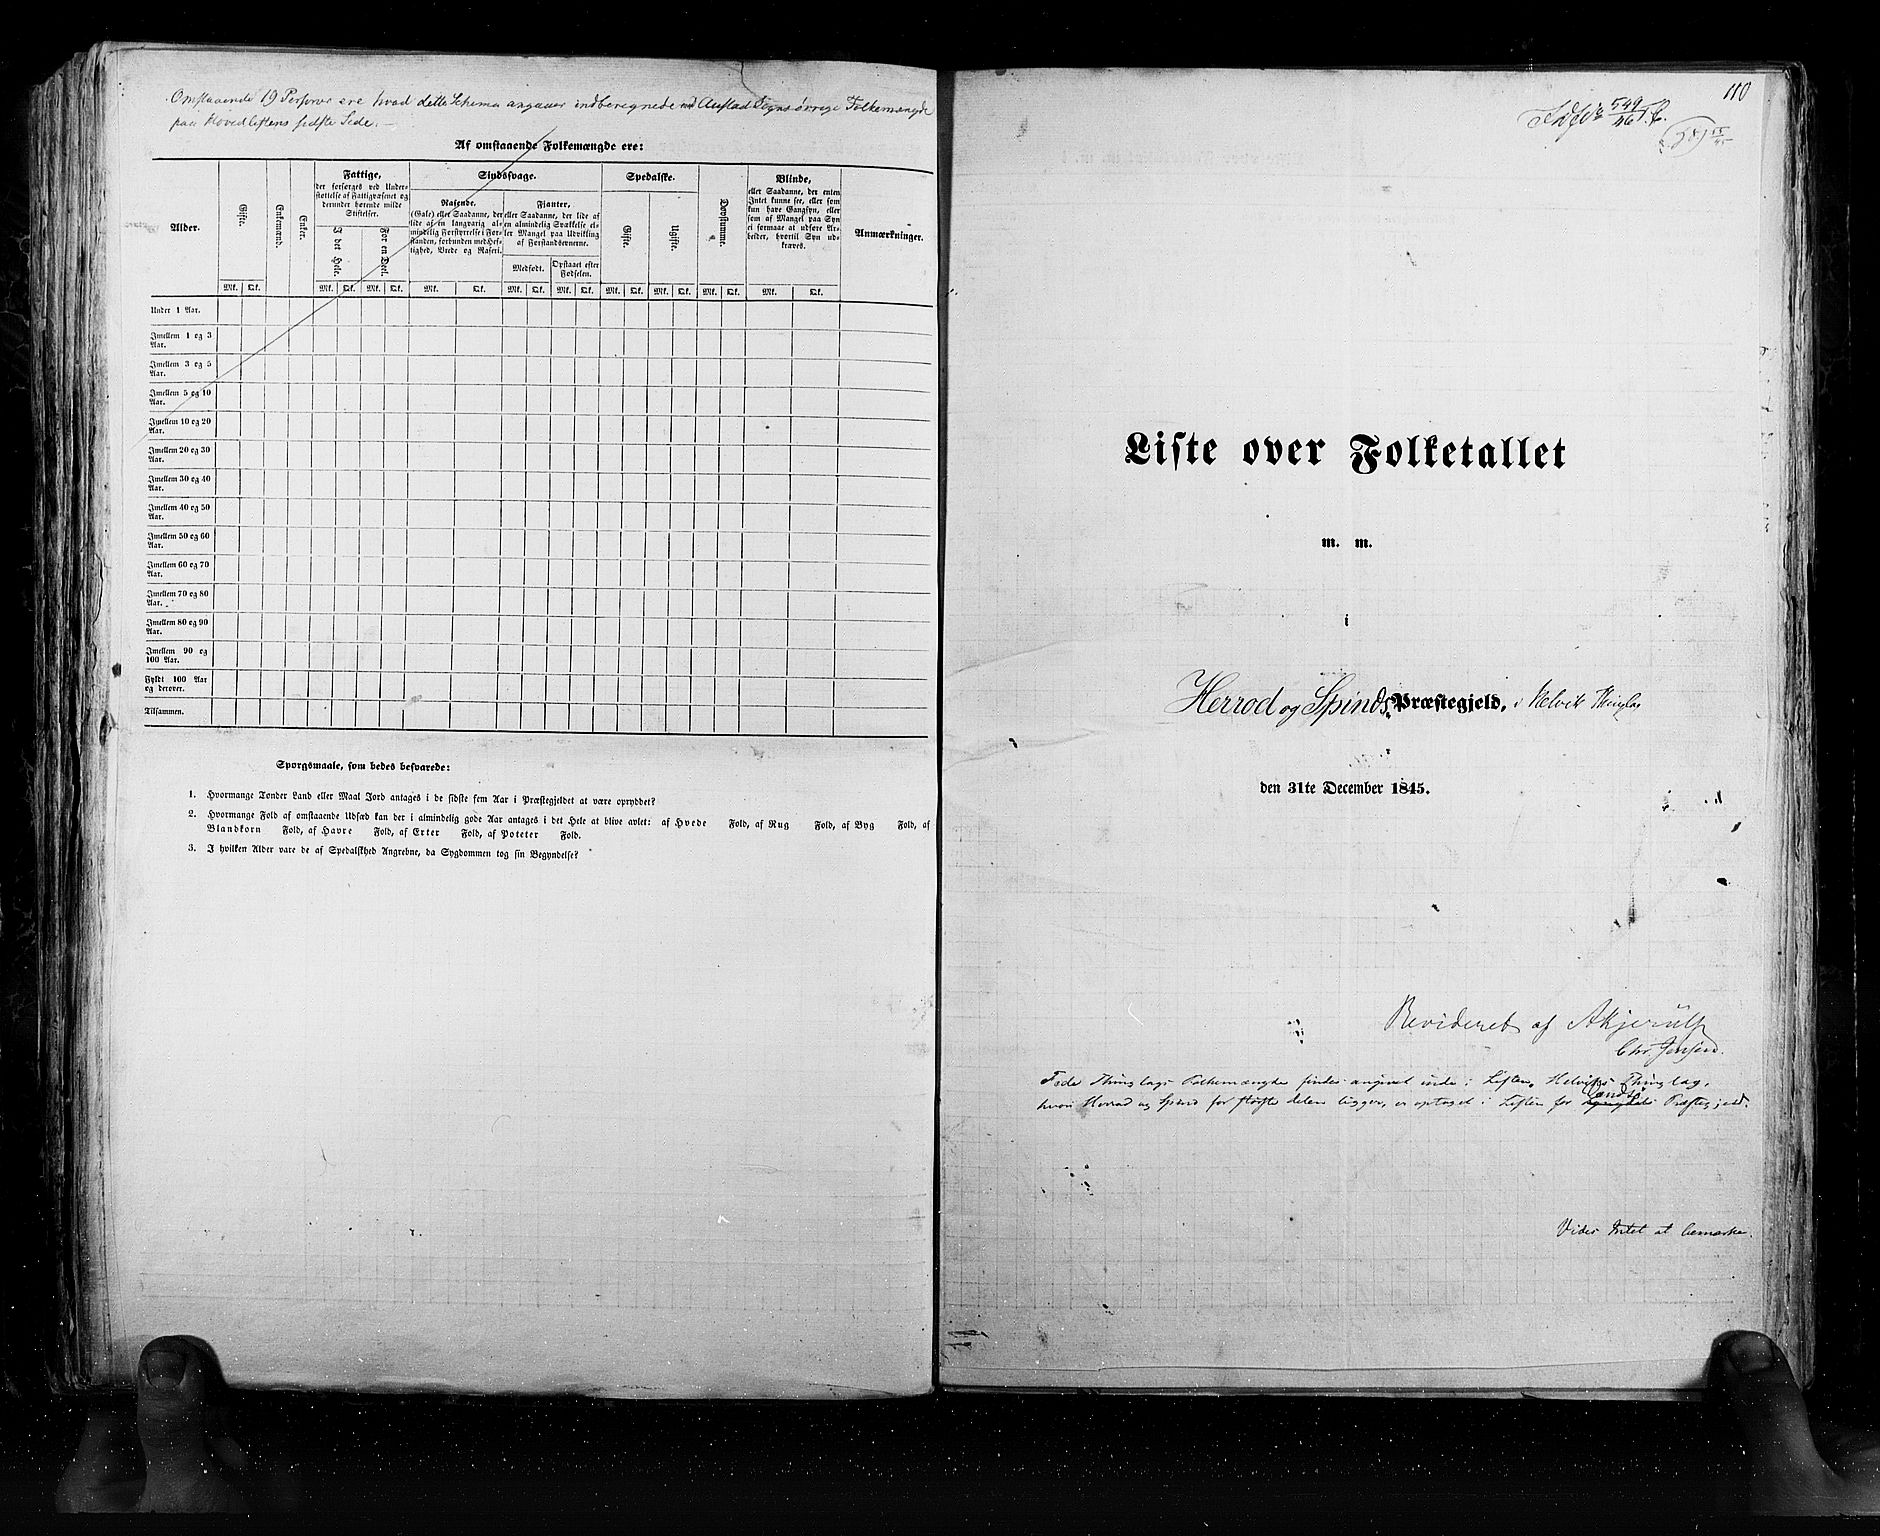 Omstaaende 19 Personer ere hvad dette Schema angaaer indberegnede ved Austad Sogns øvrige Folkemængde
paa Hovedlistens sidste Side.
Af omstaaende Folkemængde ere:
Alder.
Gifte.
Enkemænd.
Enker.
Fattige,
der forsørges ved Under-
støttelse af Fattigvæsenet og
derunder hørende milde
Stiftelser.
I det Hele.
For en Deel.
Sindssvage.
Rasende.
(Gale) eller Saadanne, der
lide af en langvarig al-
mindelig Forstyrrelse i For-
standen, forbunden med Hef-
tighed, Vrede og Raseri.
Fjanter,
eller Saadanne, der lide af
en almindelig Svækkelse el-
ler Mangel paa Udvikling
af Forstandsevnerne.
Medfødt.
Opstaaet efter
Fødselen.
Spedalske.
Gifte.
Ugifte.
Døvstumme.
Blinde,
eller Saadanne, der enten
Intet kunne see, eller som
kun have Gangsyn, eller
som af Mangel paa Syn
ei formaae at udføre Ar-
beider, hvortil Syn ud-
kræves.
Anmærkninger.
Mk. Qk. Mk. Qk. Mk. Qk. Mk. Qk. Mk. Qk. Mk. Qk. Mk. Qk. Mk. Qk. Mk. Qk. Mk. Qk.
Under 1 Aar.
Imellem 1 og 3
Aar.
Imellem 3 og 5
Aar.
Imellem 5 og 10
Aar.
Imellem 10 og 20
Aar.
Imellem 20 og 30
Aar.
Imellem 30 og 40
Aar.
Imellem 40 og 50
Aar.
Imellem 50 og 60
Aar.
Imellem 60 og 70
Aar.
Imellem 70 og 80
Aar.
Imellem 80 og 90
Aar.
Imellem 90 og
100 Aar.
Fyldt 100 Aar
og derover.
Tilsammen.
Spørgsmaale, som bedes besvarede:
1. Hvormange Tønder Land eller Maal Jord antages i de sidste fem Aar i Præstegjeldet at være opryddet?
2. Hvormange Fold af omstaaende Udsæd kan der i almindelig gode Aar antages i det Hele at blive avlet: af Hvede Fold, af Rug Fold, af Byg Fold, af
Blandkorn Fold, af Havre Fold, af Erter Fold, af Poteter Fold.
3. I hvilken Alder vare de af Spedalskhed Angrebne, da Sygdommen tog sin Begyndelse?
110
549
46
Liste over Folketallet
m. m.
i
Herrod og Spinds Præstegjeld, i Helvik Thinglag
den 31te December 1845.
Revideret af AKjerulf
Chr Jensen.
Thinglags Folkemængde findes angivet inde i Listen. Helviks Thinglag,
hvori Herrad og Spind for største delen ligger, er optaget i Listen for Præstegjeld.
Vides Intet at bemærke.